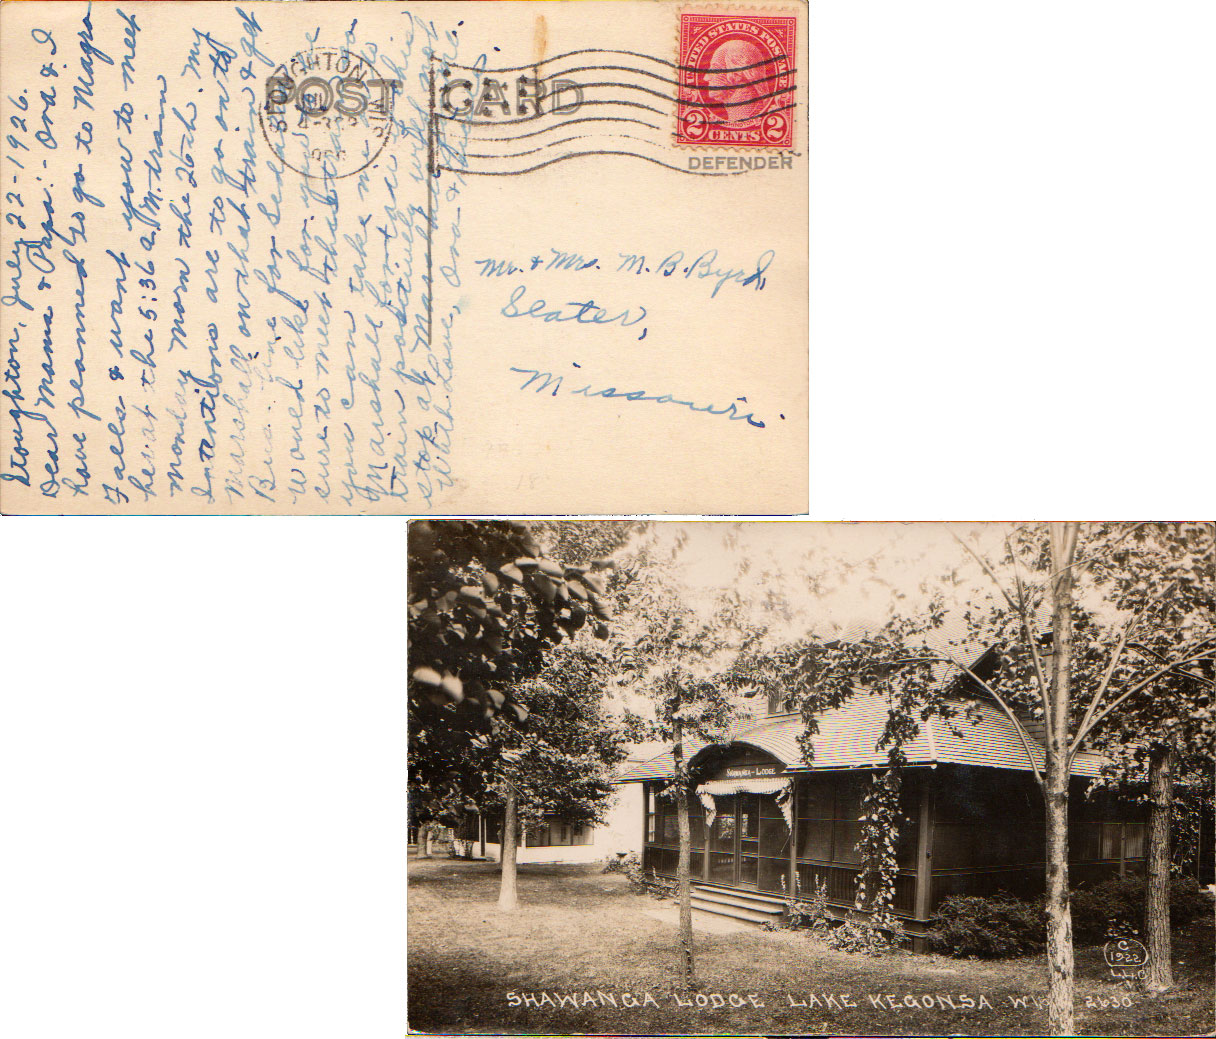 Stoughton, July 22-1926.
Dear Mama & Papa:- Ora & I
have planned to go to Niagra
Falls & want you to meet
her at the 5:36 a.M. train
Monday morn the 26th. My
Intentions are to go on to
Marshall on that train & get
Bus line for Sedalia
would like for you to be
sure to meet that train so
you can take me to
Marshall for this
train positively will not
stop at Marshall
With Love, Ora &
POST CARD
STOUGHTON
WIS.
JUL
UNITED STATES POSTAGE
2 CENTS 2
DEFENDER
Mr. & Mrs. M. B. Byrd,
Slater,
Missouri.
SHAWANGA-LODGE
C
1922
L.L.C
SHAWANGA LODGE LAKE KEGONSA WIS 2630